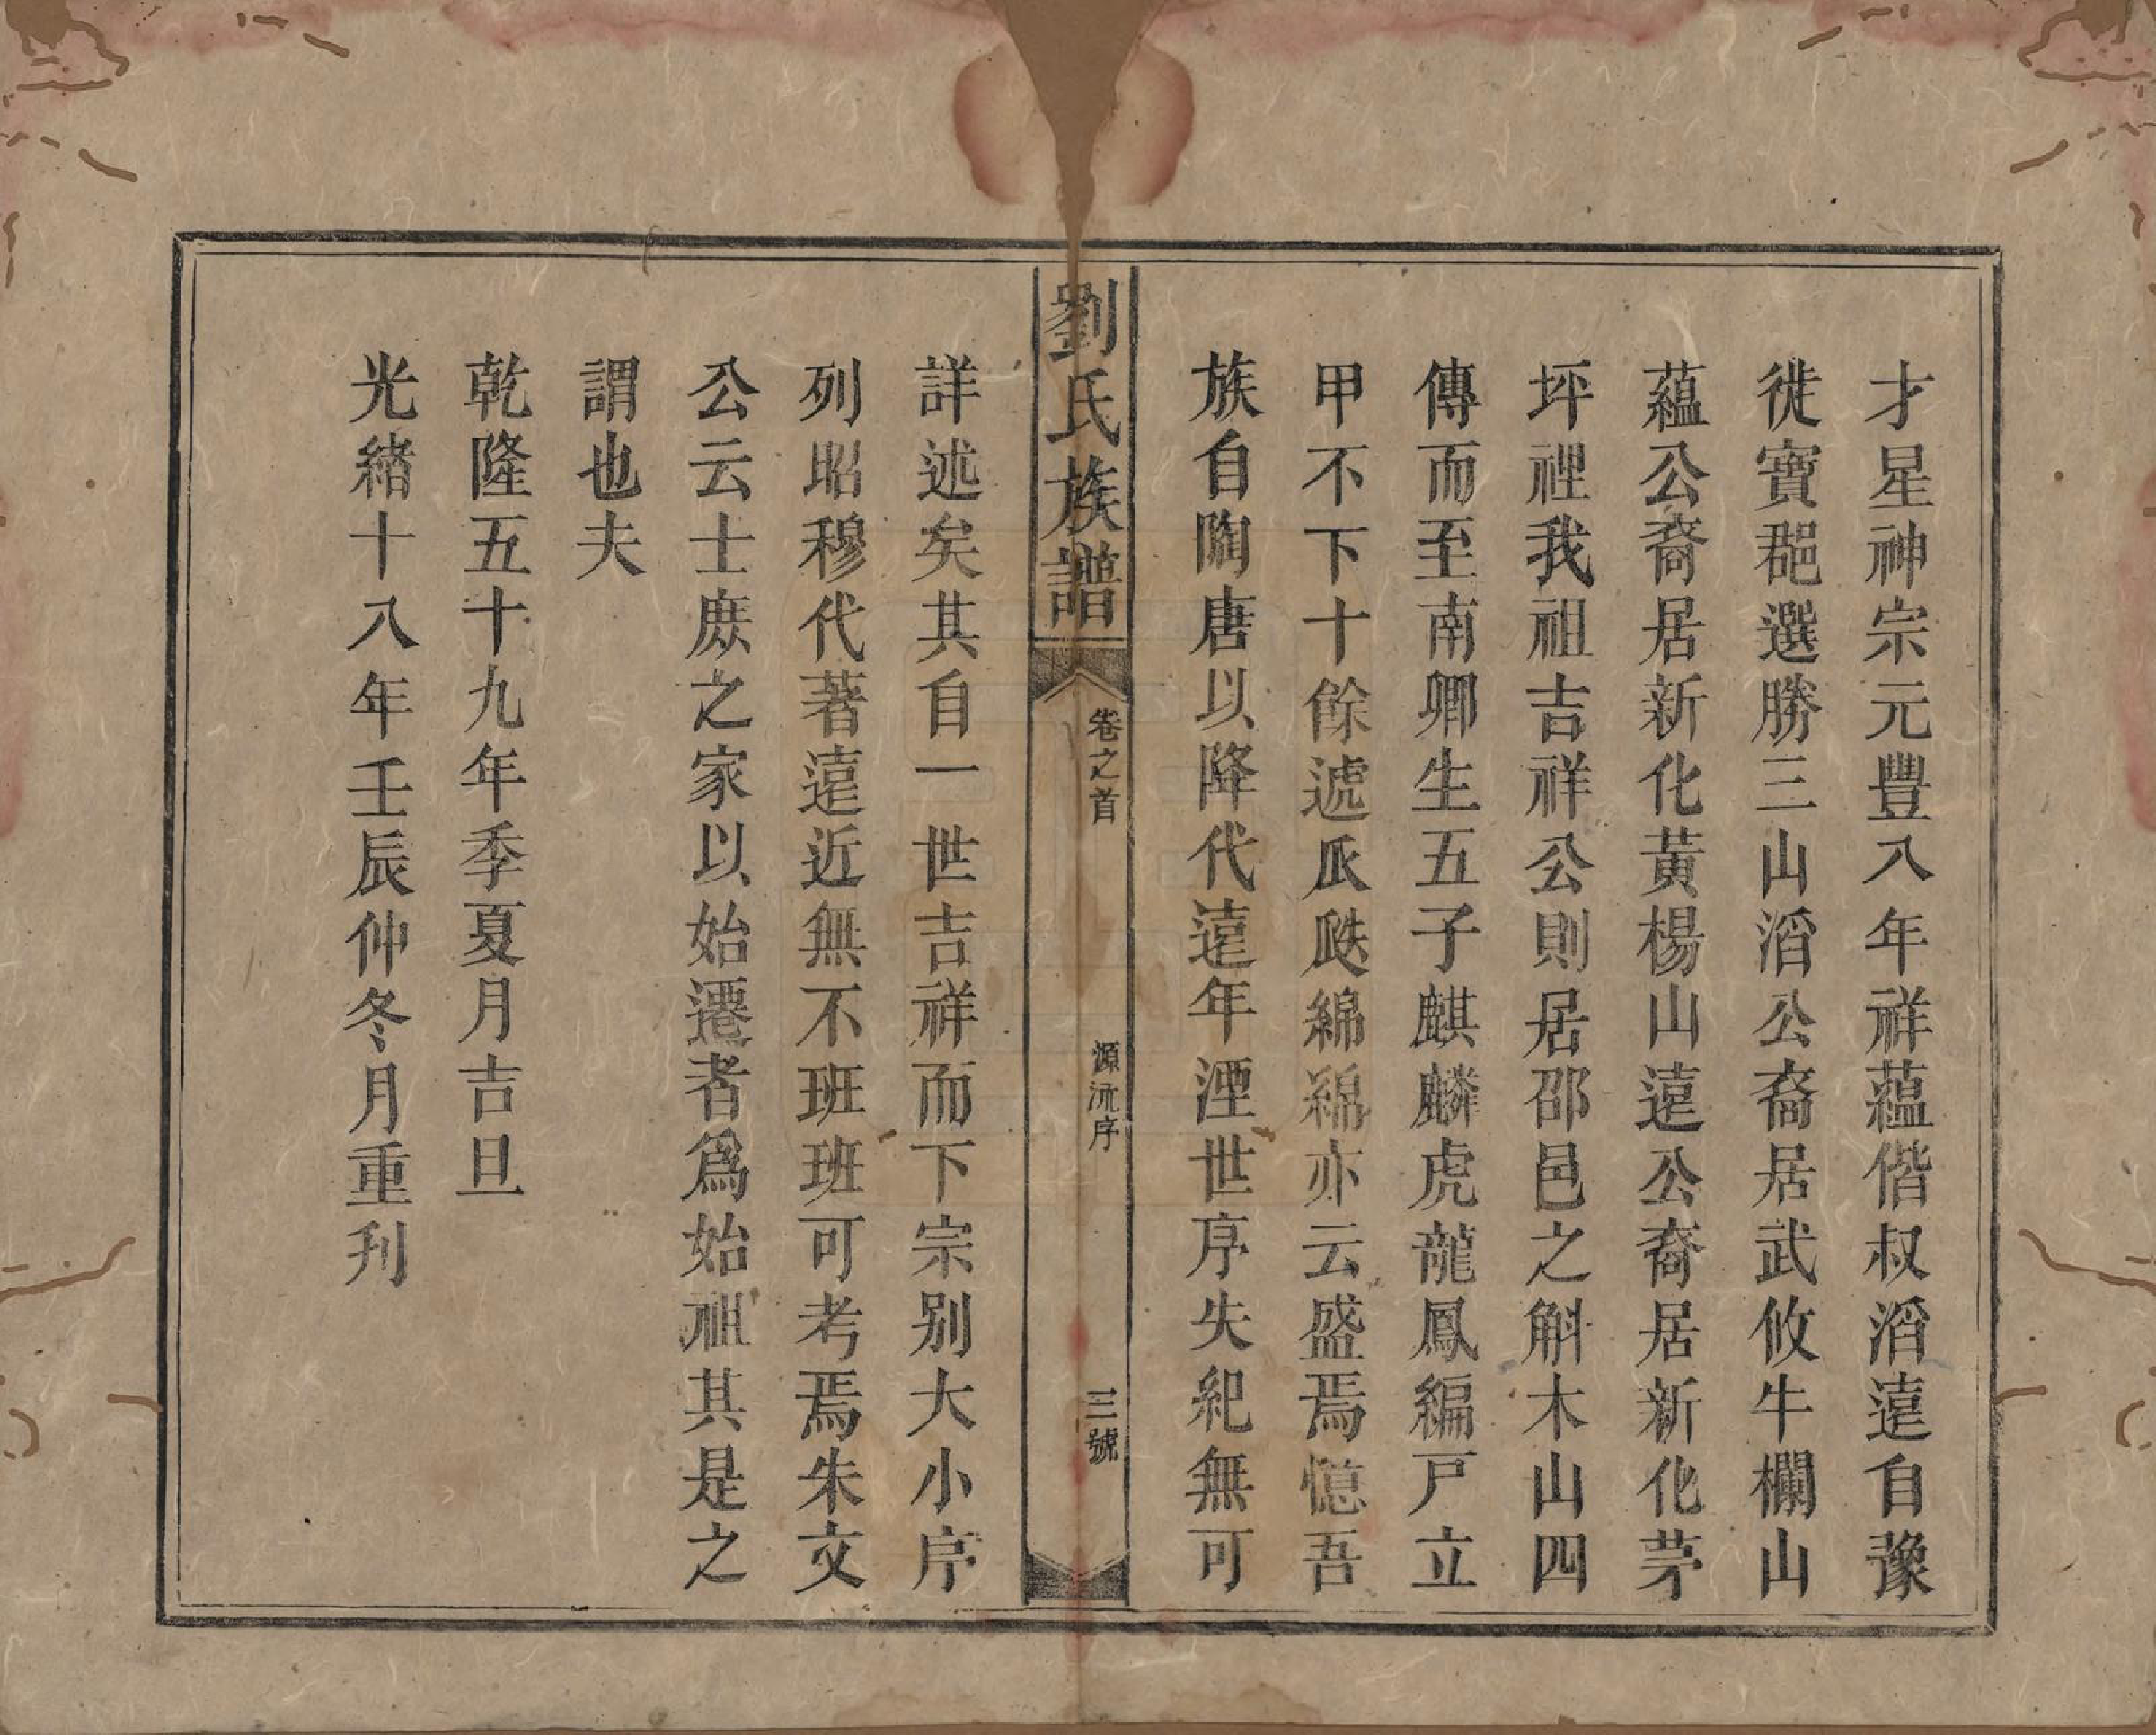 才星神宗元豐八年祥蘊偕叔滔遠自豫
徙寶郡選勝三山滔公裔居武攸牛欄山
蘊公裔居新化黃楊山遠公裔居新化茅
坪裡我祖吉祥公則居邵邑之斛木山四
傳而至南卿生五子麒麟虎龍鳳編戸立
甲不下十餘遞瓜瓞綿綿亦云盛焉憶吾
族自陶唐以降代遠年湮世序失紀無可
劉氏族譜
卷之首
源流序
三號
詳述矣其自一世吉祥而下宗别大小序
列昭穆代著遠近無不班班可考焉朱文
公云士庶之家以始遷者爲始祖其是之
謂也夫
乾隆五十九年季夏月吉旦
光緒十八年壬辰仲冬月重刋